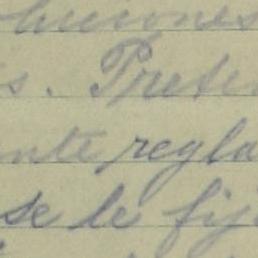 s. Prese
nte regla
se le fij